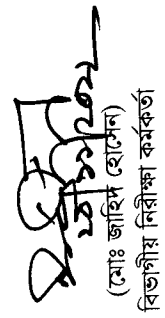 (মোঃ জাহিদ হোসেন)
বিভাগীয় নিরীক্ষা কর্মকর্তা